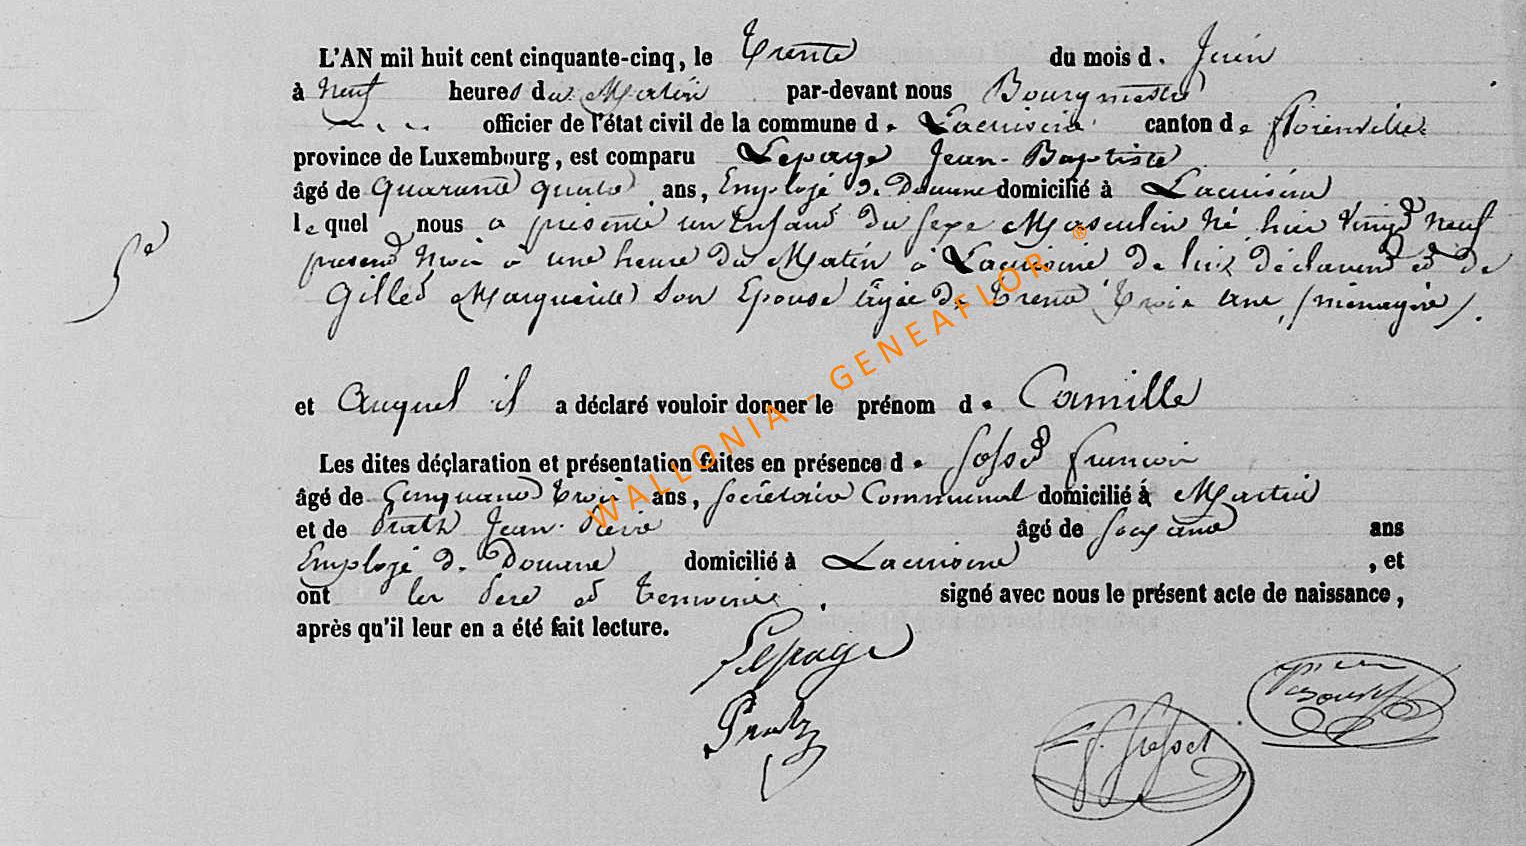 L'AN mil huit cent cinquante-cinq, le Trente du mois d. Juin
à Neuf heures du Matin par-devant nous Bourgmestre
officier de l'état civil de la commune de Lacuisine canton de florenville
province de Luxembourg, est comparu Lepage Jean-Baptiste
âgé de Quarante quatre ans, Employé d. Douane domicilié à Lacuisine
lequel nous a présenté un Enfant du sexe Masculin Né hier Vingt Neuf
présent Mois à une heure du Matin à Lacuisine de lui déclarant et de
5e
Gillet Marguerite son Epouse âgée de Trente Trois ans, (ménagère).
et Auquel il a déclaré vouloir donner le prénom de Camille
Les dites déclaration et présentation faites en présence de Josset françois
âgé de Cinquante trois ans, secrétaire Communal domicilié à Martué
et de Prath Jean-Pierre âgé de soixante ans
Employé d. Douane domicilié à Lacuisine , et
ont les Père et Témoins signé avec nous le présent acte de naissance,
après qu'il leur en a été fait lecture.
Lepage
WALLONIA - GENEAFLOR ®